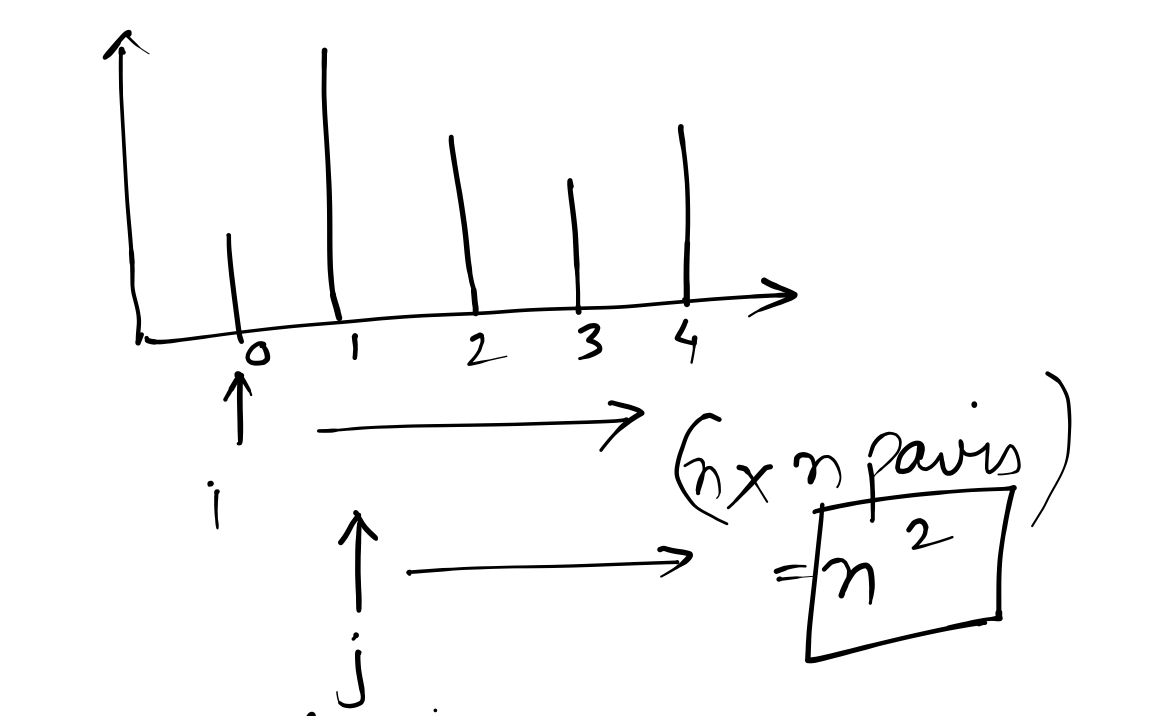 0 1 2 3 4
i
(n x n pairs)
= n²
j